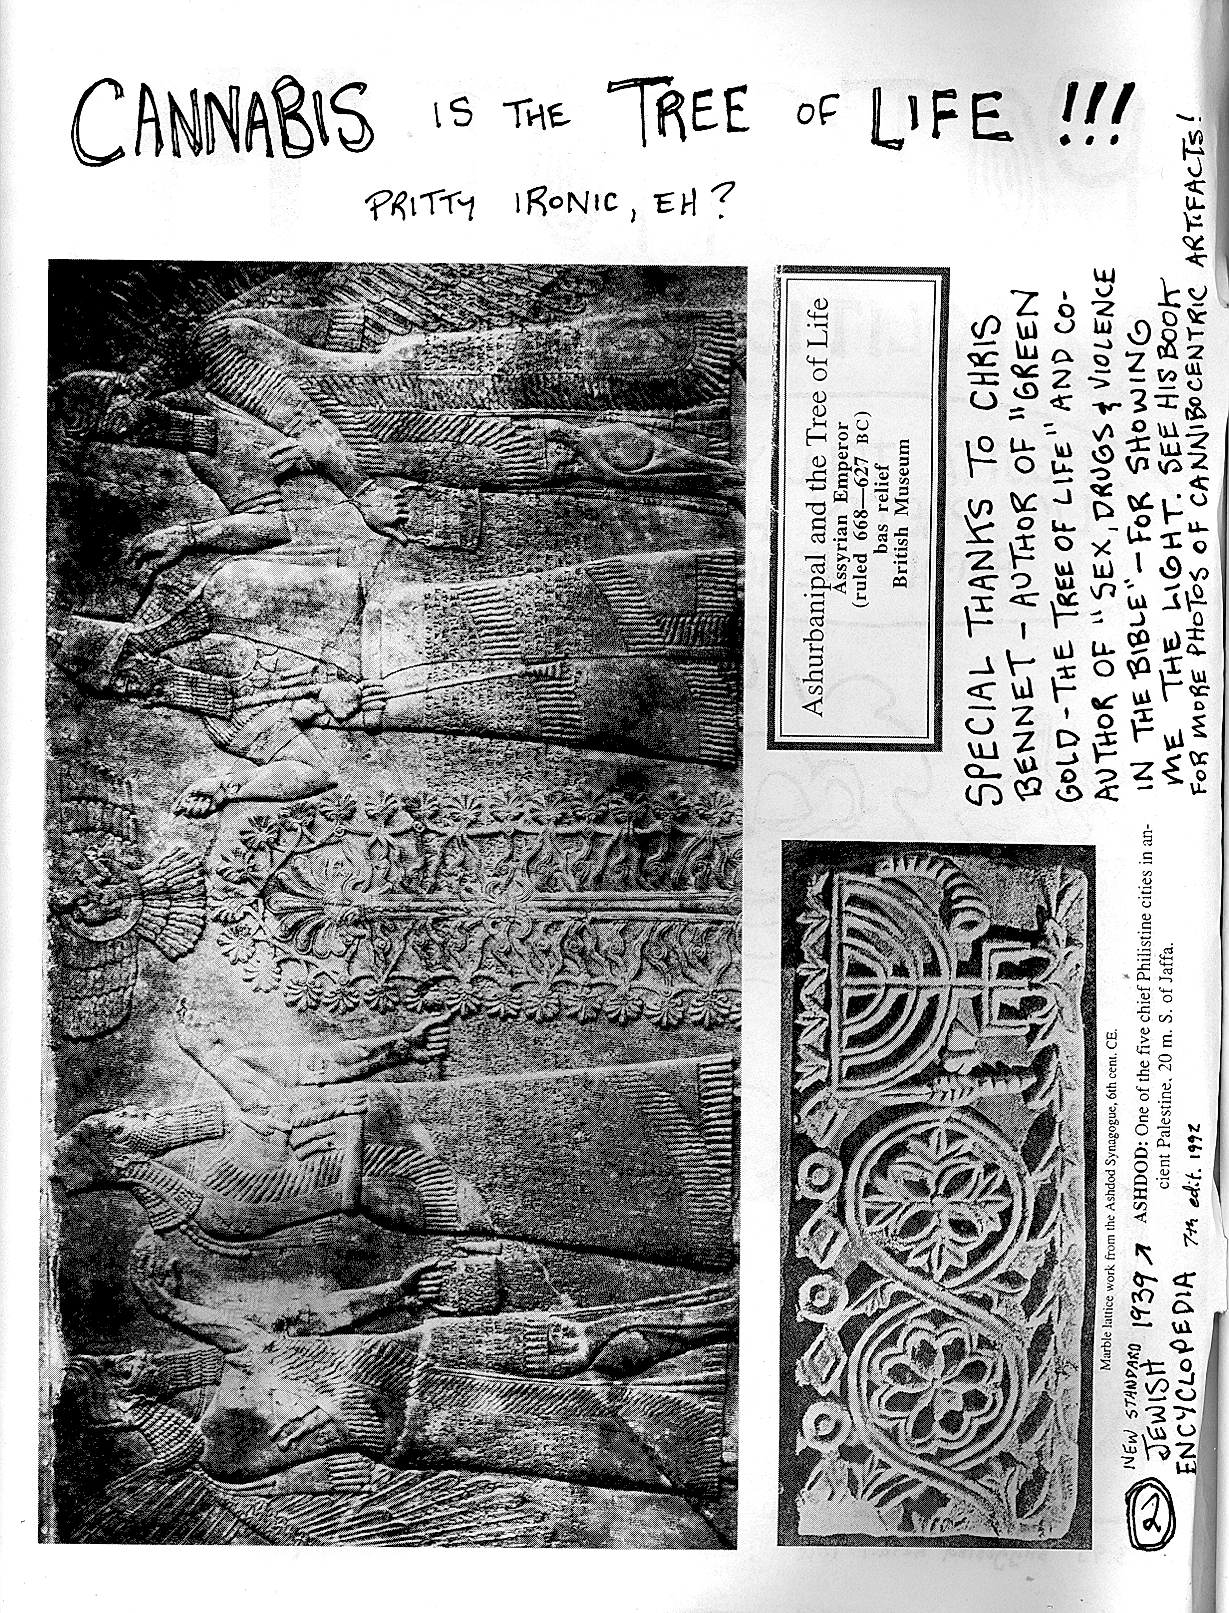 CANNABIS IS THE TREE OF LIFE !!!
PRITTY IRONIC, EH?
Ashurbanipal and the Tree of Life
Assyrian Emperor
(ruled 668—627 BC)
bas relief
British Museum
SPECIAL THANKS TO CHRIS
BENNET - AUTHOR OF "GREEN
GOLD - THE TREE OF LIFE" AND CO-
AUTHOR OF "SEX, DRUGS & VIOLENCE
IN THE BIBLE" - FOR SHOWING
ME THE LIGHT. SEE HIS BOOK
FOR MORE PHOTOS OF CANNIBOCENTRIC ARTIFACTS!
Marble lattice work from the Ashdod Synagogue, 6th cent. CE.
ASHDOD: One of the five chief Philistine cities in an-
cient Palestine. 20 m. S. of Jaffa.
NEW STANDARD 1939 ↗
JEWISH
ENCYCLOPEDIA 7th edit. 1992
2